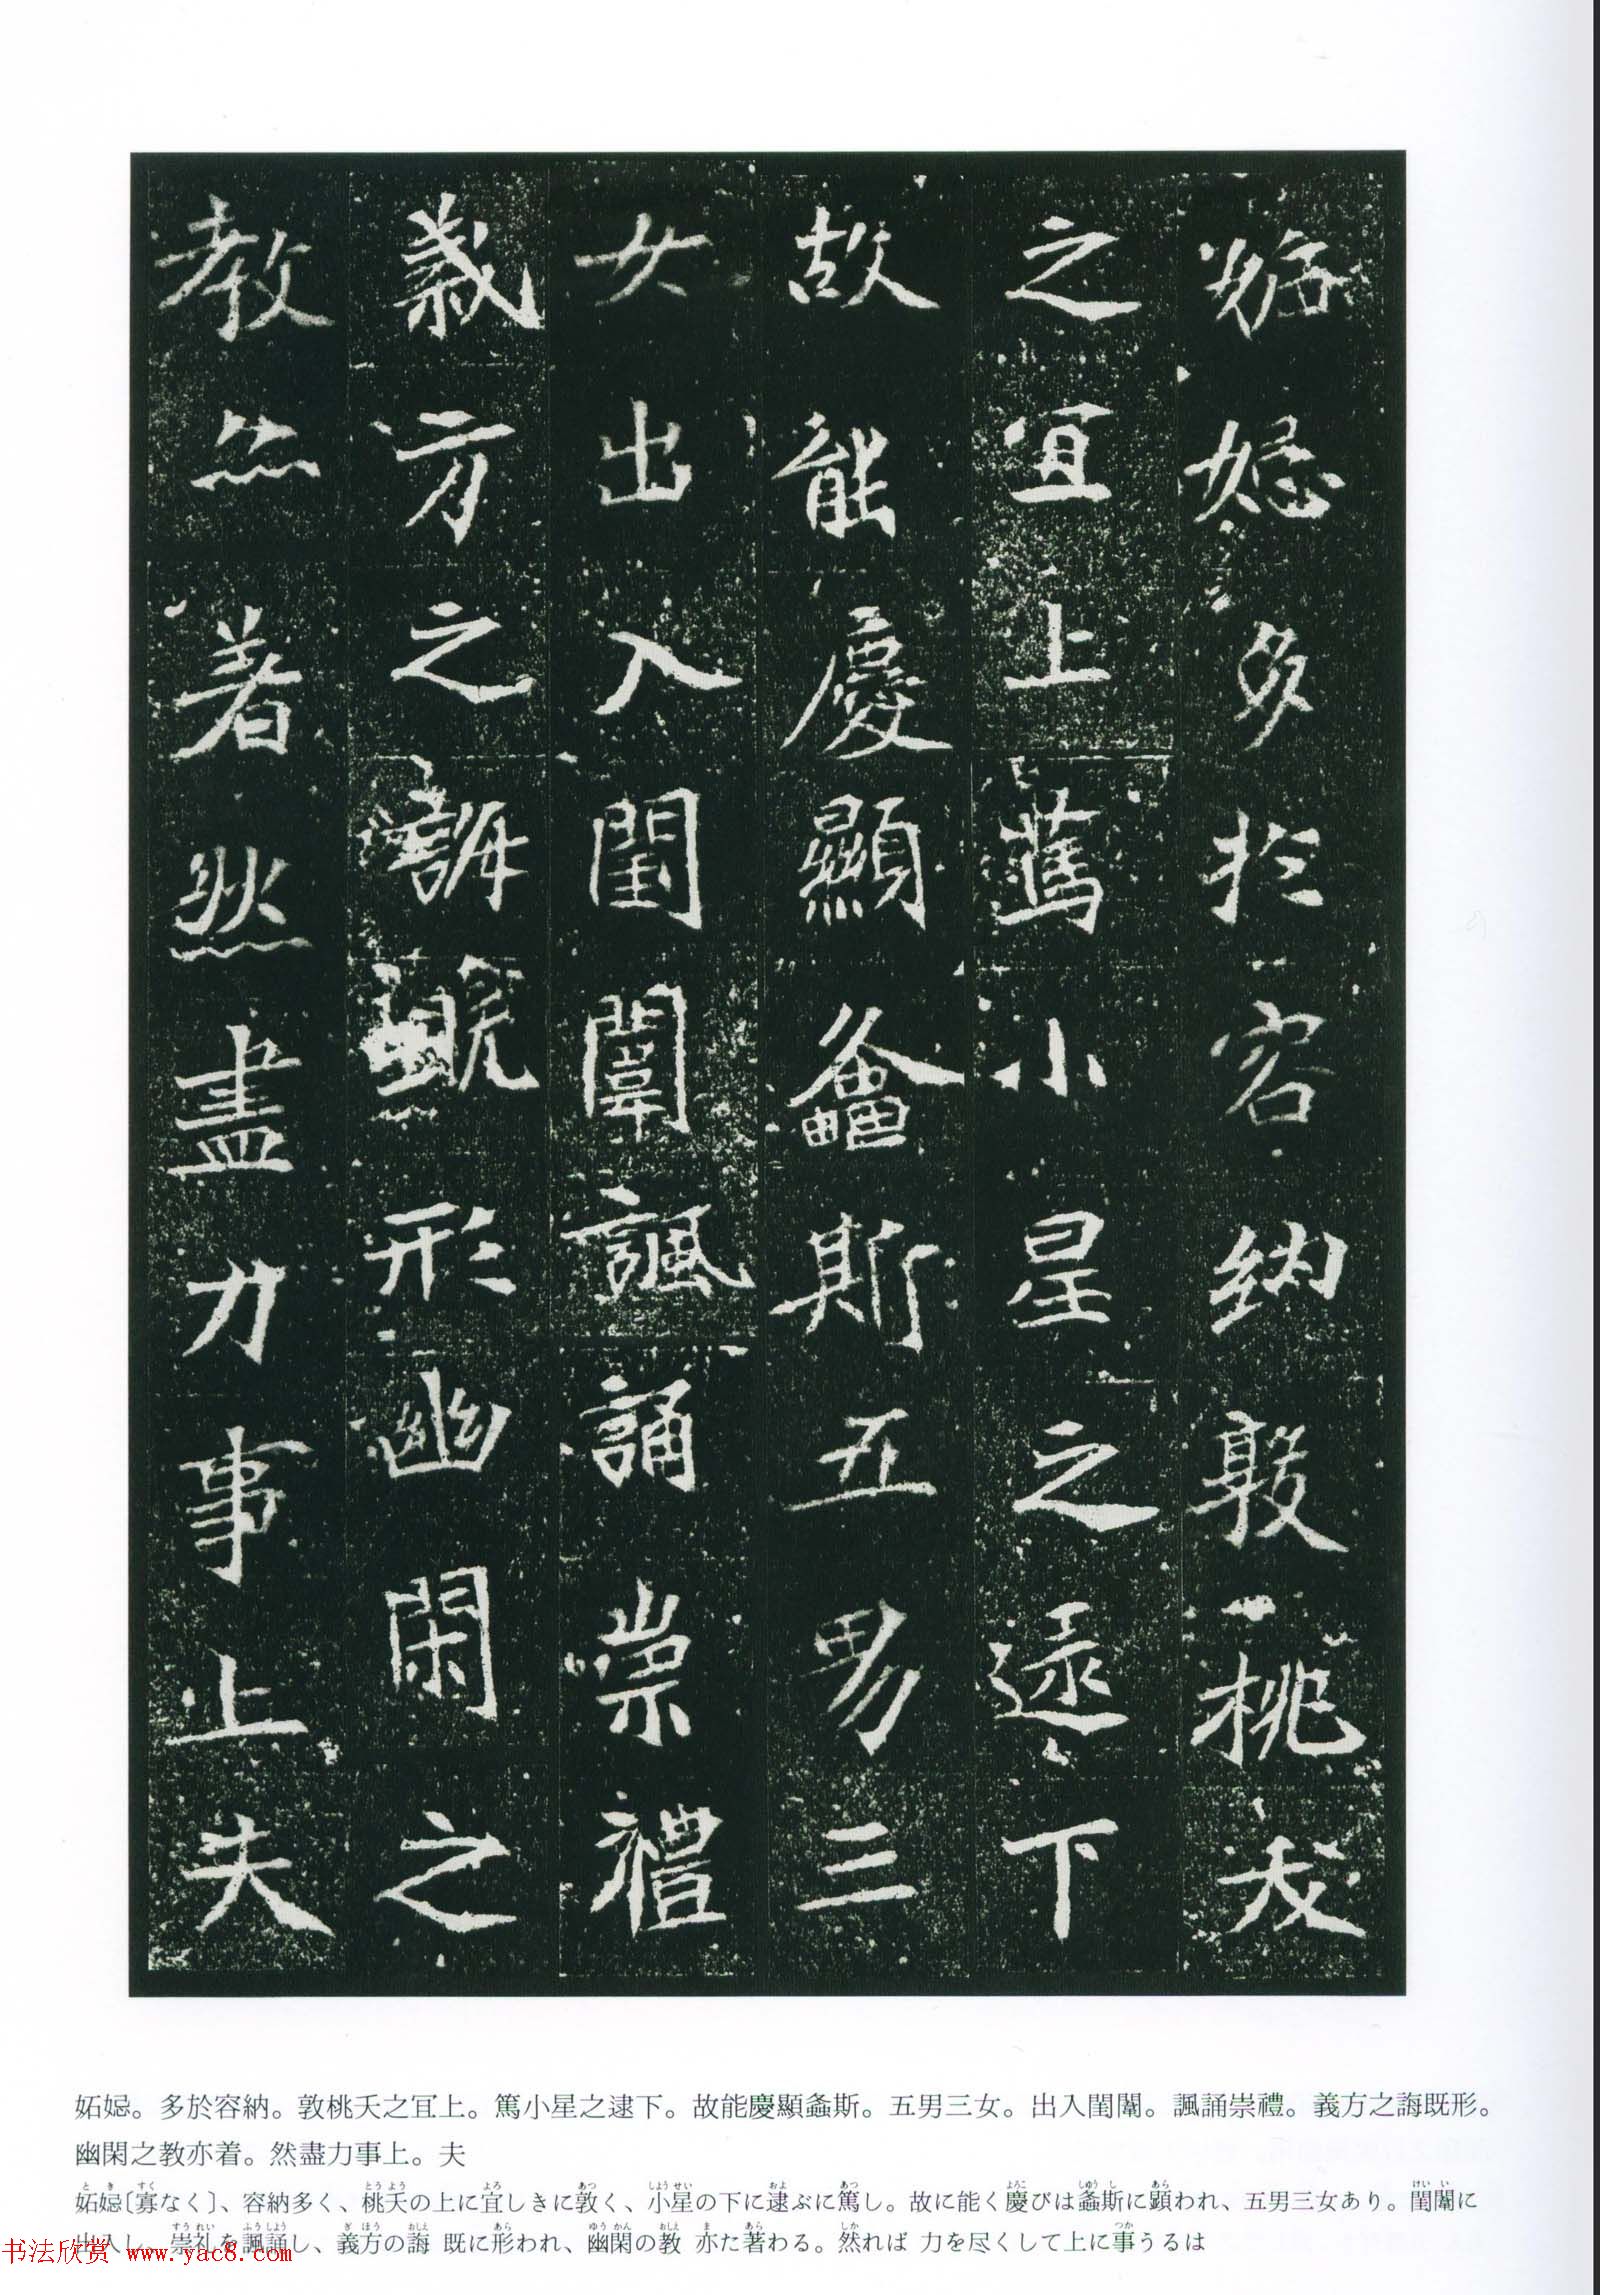 妬媢多於容納敦桃夭
之冝上篤小星之逮下
故能慶顯螽斯五男三
女出入閨闈諷誦崇禮
義方之誨既形幽閑之
教亦著然盡力事上夫
妬媢。多於容納。敦桃夭之冝上。篤小星之逮下。故能慶顯螽斯。五男三女。出入閨闈。諷誦崇禮。義方之誨既形。
幽閑之教亦着。然盡力事上。夫
妬媢〔寡なく〕、容納多く、桃夭の上に宜しきに敦く、小星の下に逮ぶに篤し。故に能く慶びは螽斯に顕われ、五男三女あり。閨闈に
出入し、崇礼を諷誦し、義方の誨 既に形われ、幽閑の教 亦た著わる。然れば 力を尽くして上に事うるは
书法欣赏 www.yac8.com